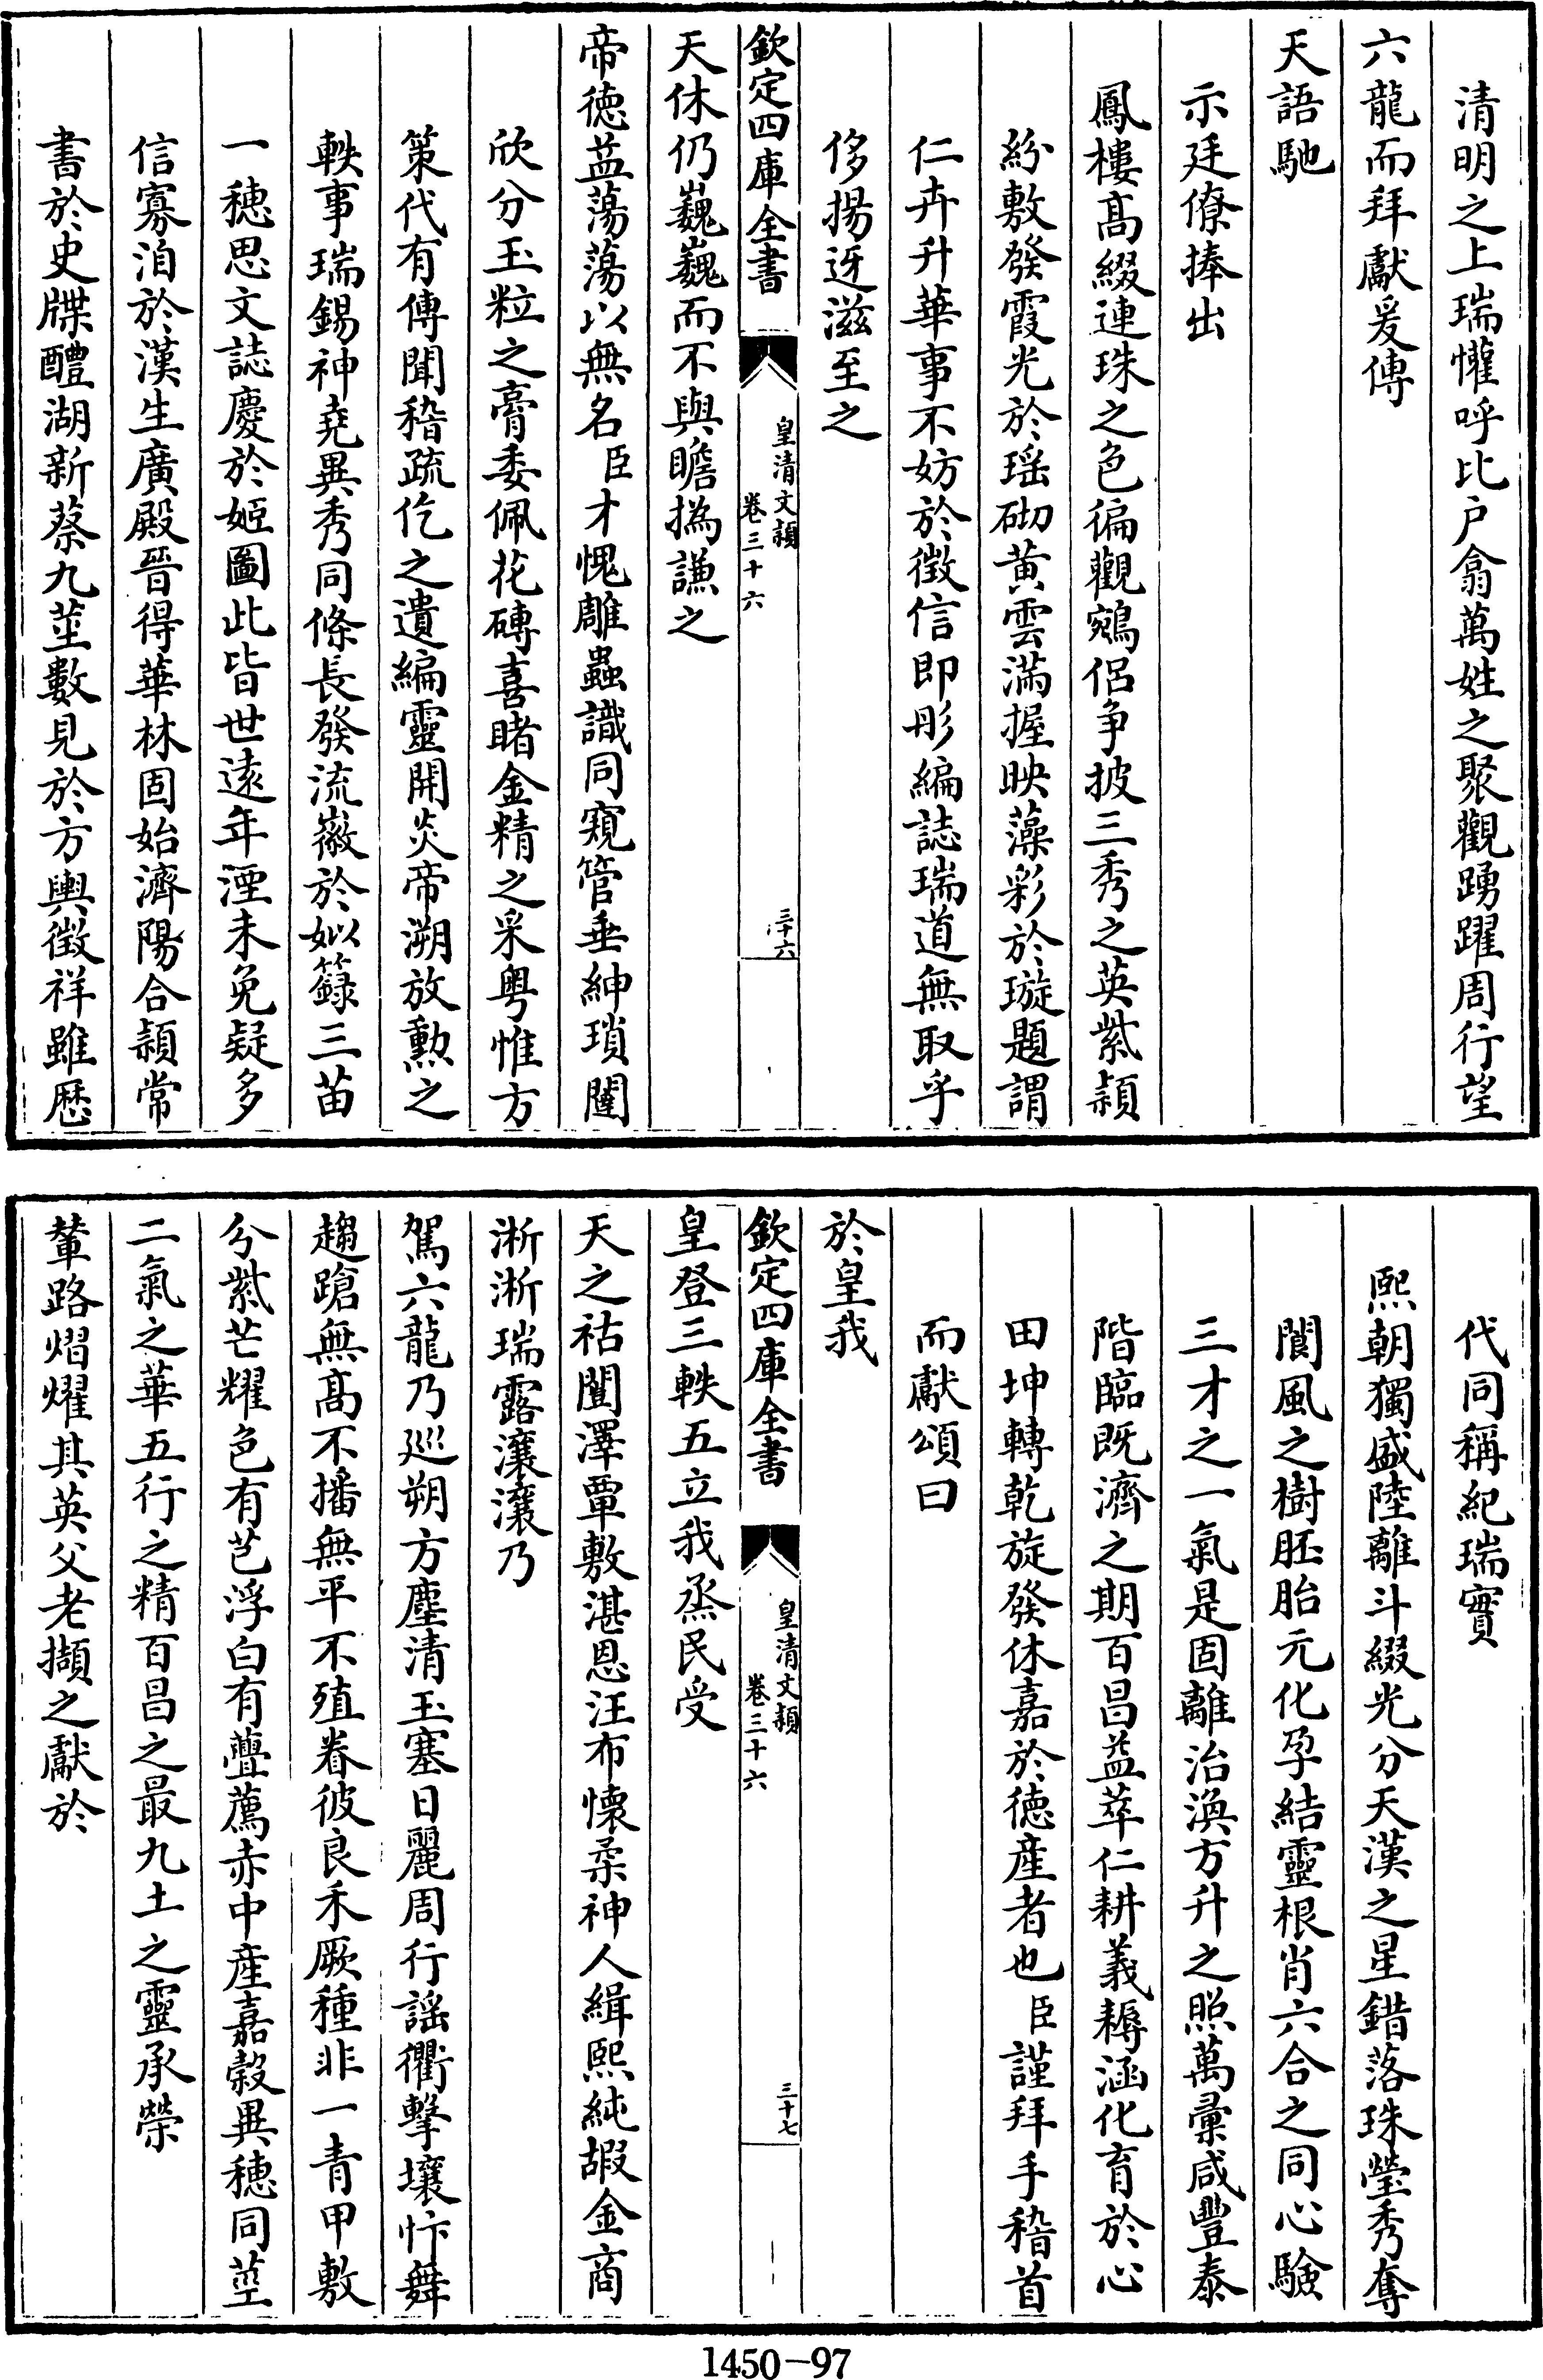 清明之上瑞懽呼比户翕萬姓之聚觀踴躍周行望
六龍而拜獻爰傳
天語馳
示廷僚捧出
鳳樓髙綴連珠之色徧觀鵷侣争披三秀之英紫頴
紛敷發霞光於瑶砌黄雲滿握映藻彩於璇題謂
仁卉升華事不妨於徴信即彤編誌瑞道無取乎
侈揚迓滋至之
欽定四庫全書
皇清文頴
卷三十六
三十六
天休仍巍巍而不與瞻撝謙之
帝徳益蕩蕩以無名臣才愧雕蟲識同窺管垂紳瑣闥
欣分玉粒之膏委佩花磚喜睹金精之采粤惟方
策代有傳聞稽疏仡之遺編靈開炎帝溯放勲之
軼事瑞錫神堯異秀同條長發流徽於姒籙三苗
一穂思文誌慶於姬圖此皆世逺年湮未免疑多
信寡洎於漢生廣殿晉得華林固始濟陽合頴常
書於史牒醴湖新蔡九莖數見於方輿徴祥雖厯
代同稱紀瑞實
熙朝獨盛陸離斗綴光分天漢之星錯落珠瑩秀奪
閬風之樹胚胎元化孕結靈根肖六合之同心驗
三才之一氣是固離治渙方升之照萬彚咸豐泰
階臨既濟之期百昌益萃仁耕義耨涵化育於心
田坤轉乾旋發休嘉於徳産者也臣謹拜手稽首
而獻頌曰
於皇我
欽定四庫全書
皇清文頴
卷三十六
三十七
皇登三軼五立我烝民受
天之祜闓澤覃敷湛恩汪布懐柔神人緝熙純嘏金商
淅淅瑞露瀼瀼乃
駕六龍乃廵朔方塵清玉塞日麗周行謡衢擊壤忭舞
趨蹌無髙不播無平不殖眷彼良禾厥種非一青甲敷
兮紫芒耀色有芑浮白有虋薦赤中産嘉榖異穂同莖
二氣之華五行之精百昌之最九土之靈承榮
輦路熠燿其英父老擷之獻於
1450-97